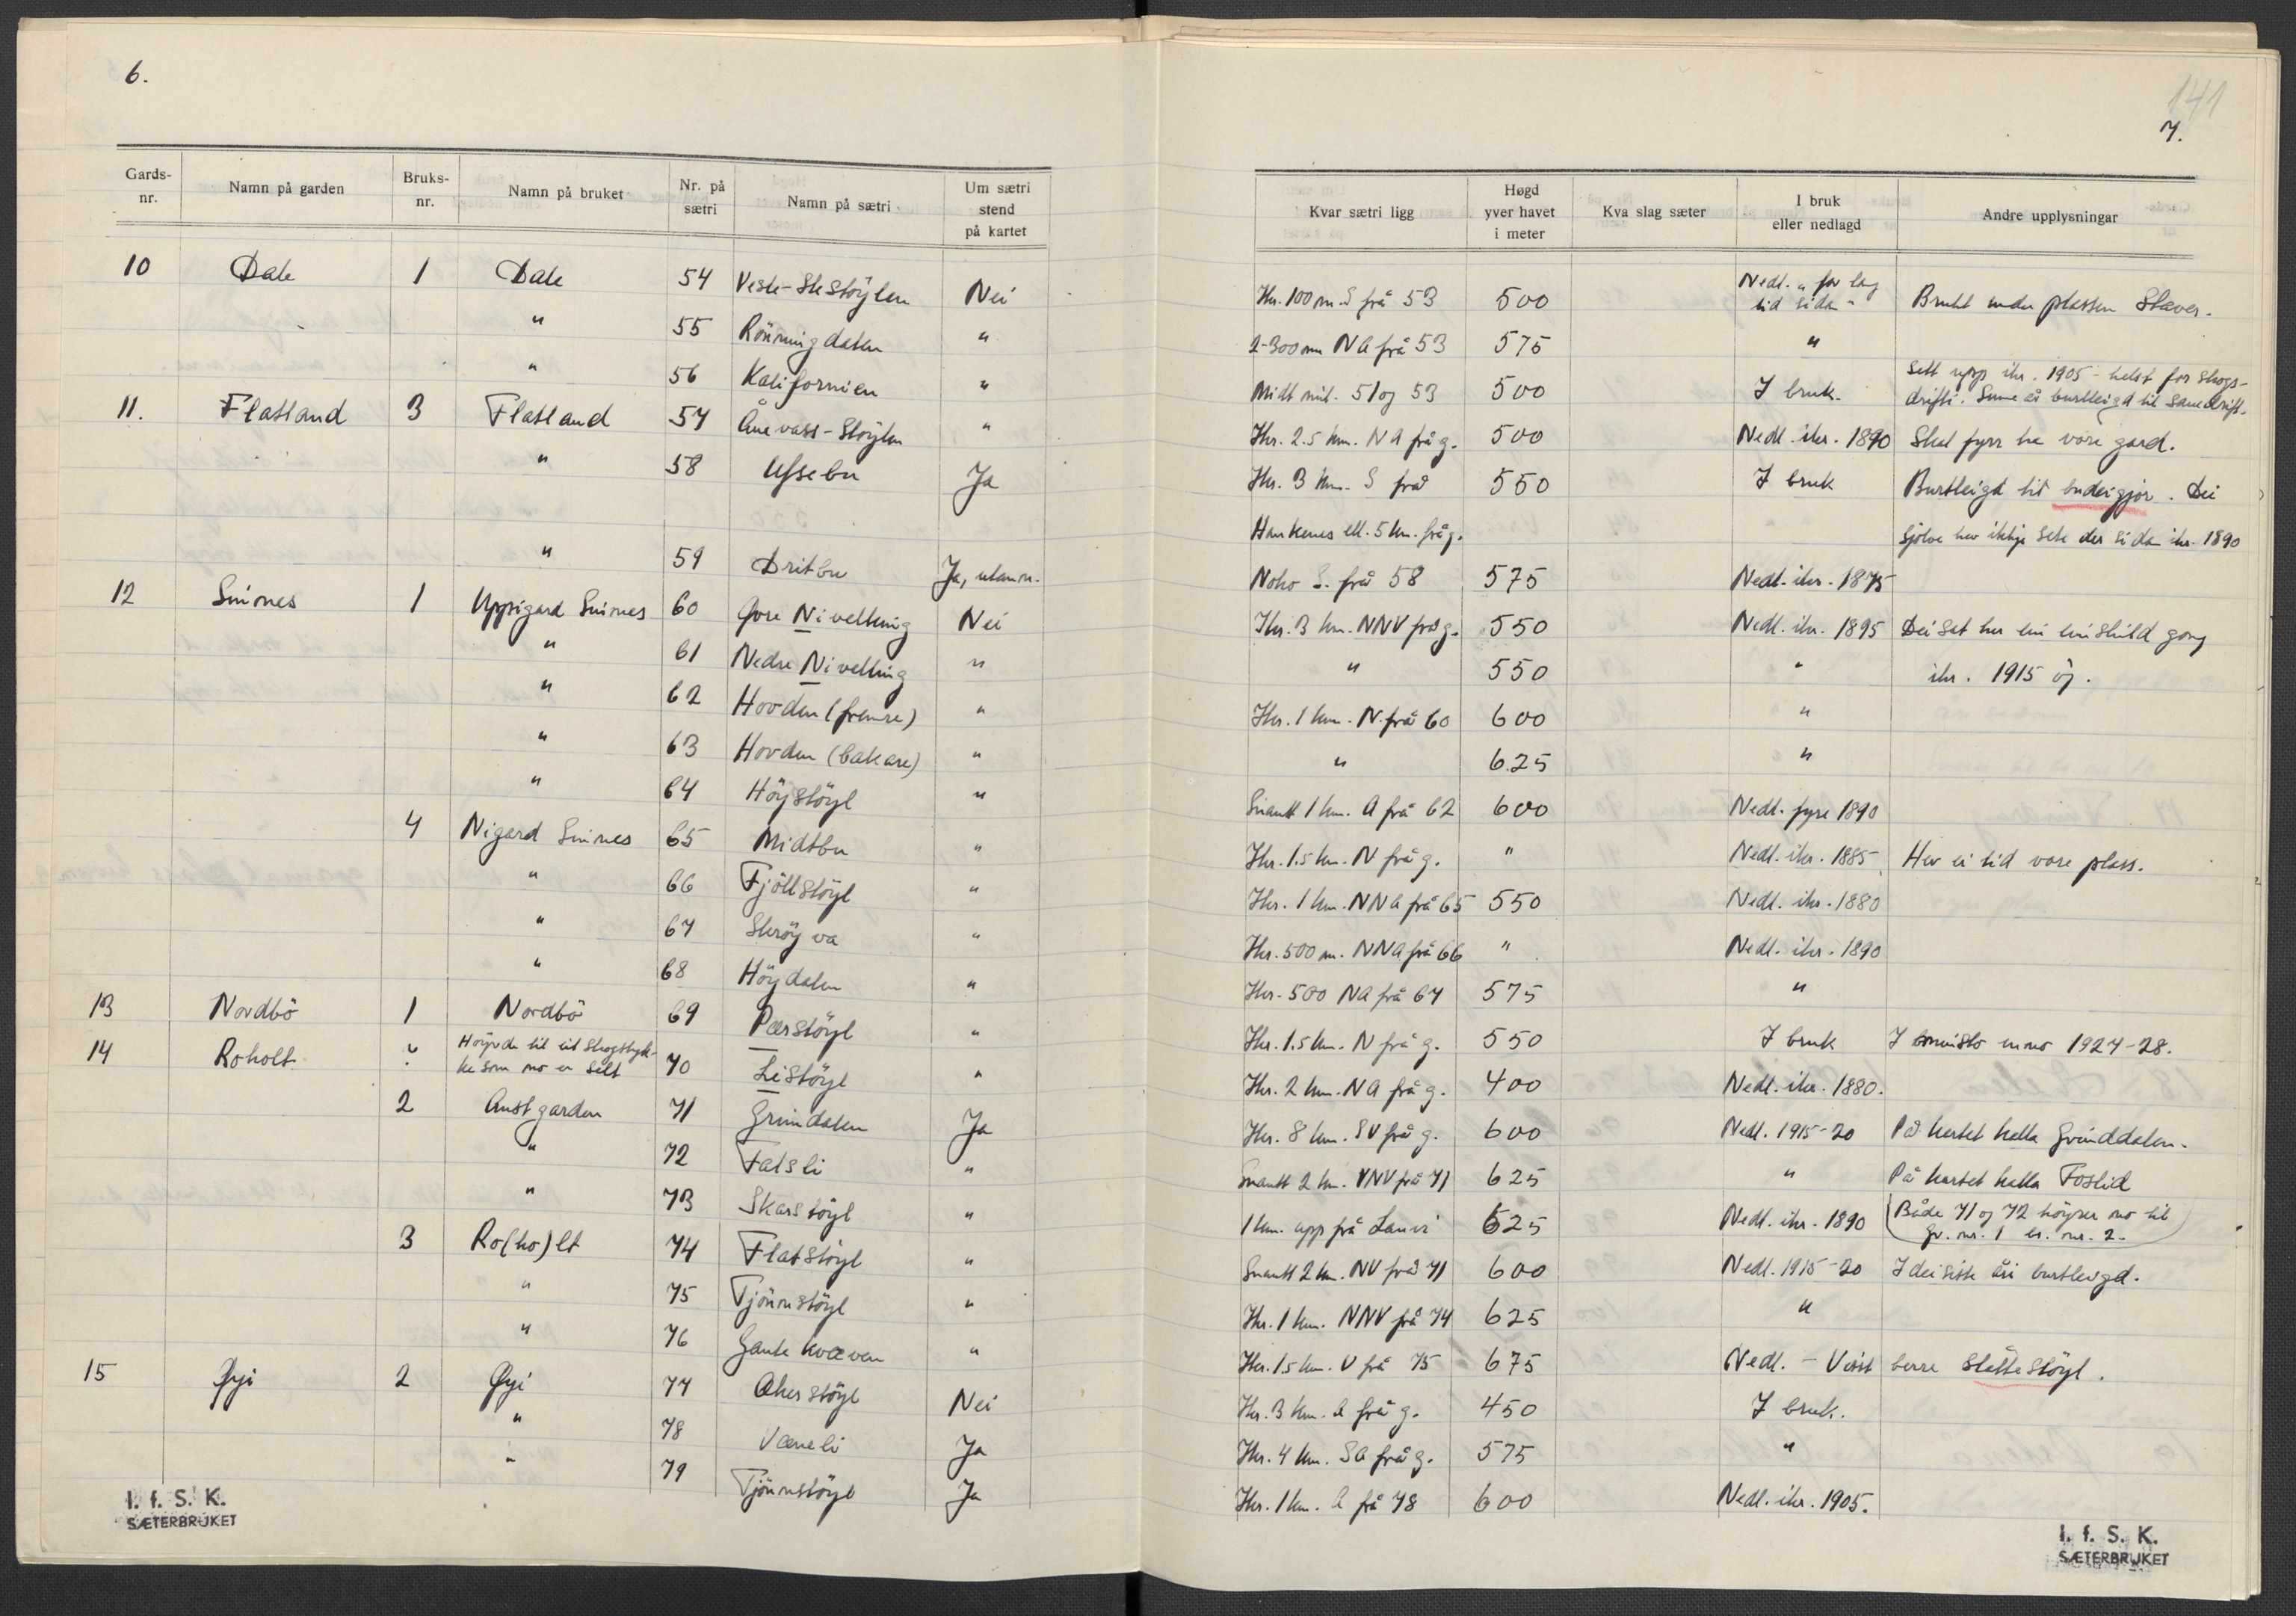 6.
Gards- nr. | Namn på garden | Bruks- nr. | Namn på bruket | Nr. på sætri | Namn på sætri | Um sætri stend på kartet
10 Dale 1 Dale 54 Veste-Stestöylen Nei
" 55 Rönningdalen "
" 56 Kalifornien "
11. Flatland 3 Flatland 57 Ånevass-Stöylen "
" 58 Ufsebu Ja
" 59 Dritbu Ja, utan n.
12 Sminnes 1 Uppigard Sminnes 60 Øvre Nivelking Nei
" 61 Nedre Nivelking "
" 62 Hovden (fremre) "
" 63 Hovden (bakare) "
" 64 Höystöyl "
4 Nigard Sminnes 65 Midtbu "
" 66 Fjöllstöyl "
" 67 Skröyva "
" 68 Höydalen "
13 Nordbö 1 Nordbö 69 Perstöyl "
14 Roholt ? Höyrde til eit skogstyk-
ke som no er selt 70 Listöyl "
2 Austgarden 71 Grindalen Ja
" 72 Fatsli "
" 73 Skarstöyl "
3 Ro(ho)lt 74 Flatstöyl "
" 75 Tjönnstöyl "
" 76 Gautekværven "
15 Øyi 2 Øyi 77 Åkerstöyl Nei
" 78 Væneli Ja
" 79 Tjönnstöyl Ja
I. f. S. K.
SÆTERBRUKET
141
7.
Kvar sætri ligg | Høgd yver havet i meter | Kva slag sæter | I bruk eller nedlagd | Andre upplysningar
Ikr. 100 m. S frå 53 500 Nedl. "for lag
tid sidan" Brukt under plassen Staver.
2-300 m NA frå 53 575 "
Midt mill. 51 og 53 500 I bruk. Sett upp ikr. 1905 - helst for skogs-
drifti. Sume år burtleigd til sauedrift.
Ikr. 2.5 km. NA frå g. 500 Nedl. ikr. 1890 Skal fyrr ha vore gard.
Ikr. 3 km. S frå 550 I bruk Burtleigd til budeigjor. Dei
Haukenes ell. 5 km. frå g. sjölve hev ikkje sete der sidan ikr. 1890
Noko S. frå 58 575 Nedl. ikr. 1875
Ikr. 3 km. NNV frå g. 550 Nedl. ikr. 1895 Dei sat her ein einskild gong
" 550 " ikr. 1915 òg.
Ikr. 1 km. N. frå 60 600 "
" 625 "
Snautt 1 km. A frå 62 600 Nedl. fyre 1890
Ikr. 1.5 km. N frå g. " Nedl. ikr. 1885 Hev ei tid vore plass.
Ikr. 1 km. NNA frå 65 550 Nedl. ikr. 1880
Ikr. 500 m. NNA frå 66 " Nedl. ikr. 1890
Ikr. 500 NA frå 67 575 "
Ikr. 1.5 km. N frå g. 550 I bruk I minsto enno 1927-28.
Ikr. 2 km. NA frå g. 400 Nedl. ikr. 1880.
Ikr. 8 km. SV frå g. 600 Nedl. 1915-20 På kartet kalla Grinddalen.
Snautt 2 km. VNV frå 71 625 " På kartet kalla Foslid
1 km. upp frå Lauvi 625 Nedl. ikr. 1890 (Både 71 og 72 höyrer no til
Gr. nr. 1 br. nr. 2.)
Snautt 2 km. NV frå 71 600 Nedl. 1915-20 I dei siste åri burtleigd.
Ikr. 1 km. NNV frå 74 625 "
Ikr. 1.5 km. V frå 75 675 Nedl. - Vorit berre slåttestöyl.
Ikr. 3 km. A frå g. 450 I bruk.
Ikr. 4 km. SA frå g. 575 "
Ikr. 1 km. A frå 78 600 Nedl. ikr. 1905.
I. f. S. K.
SÆTERBRUKET